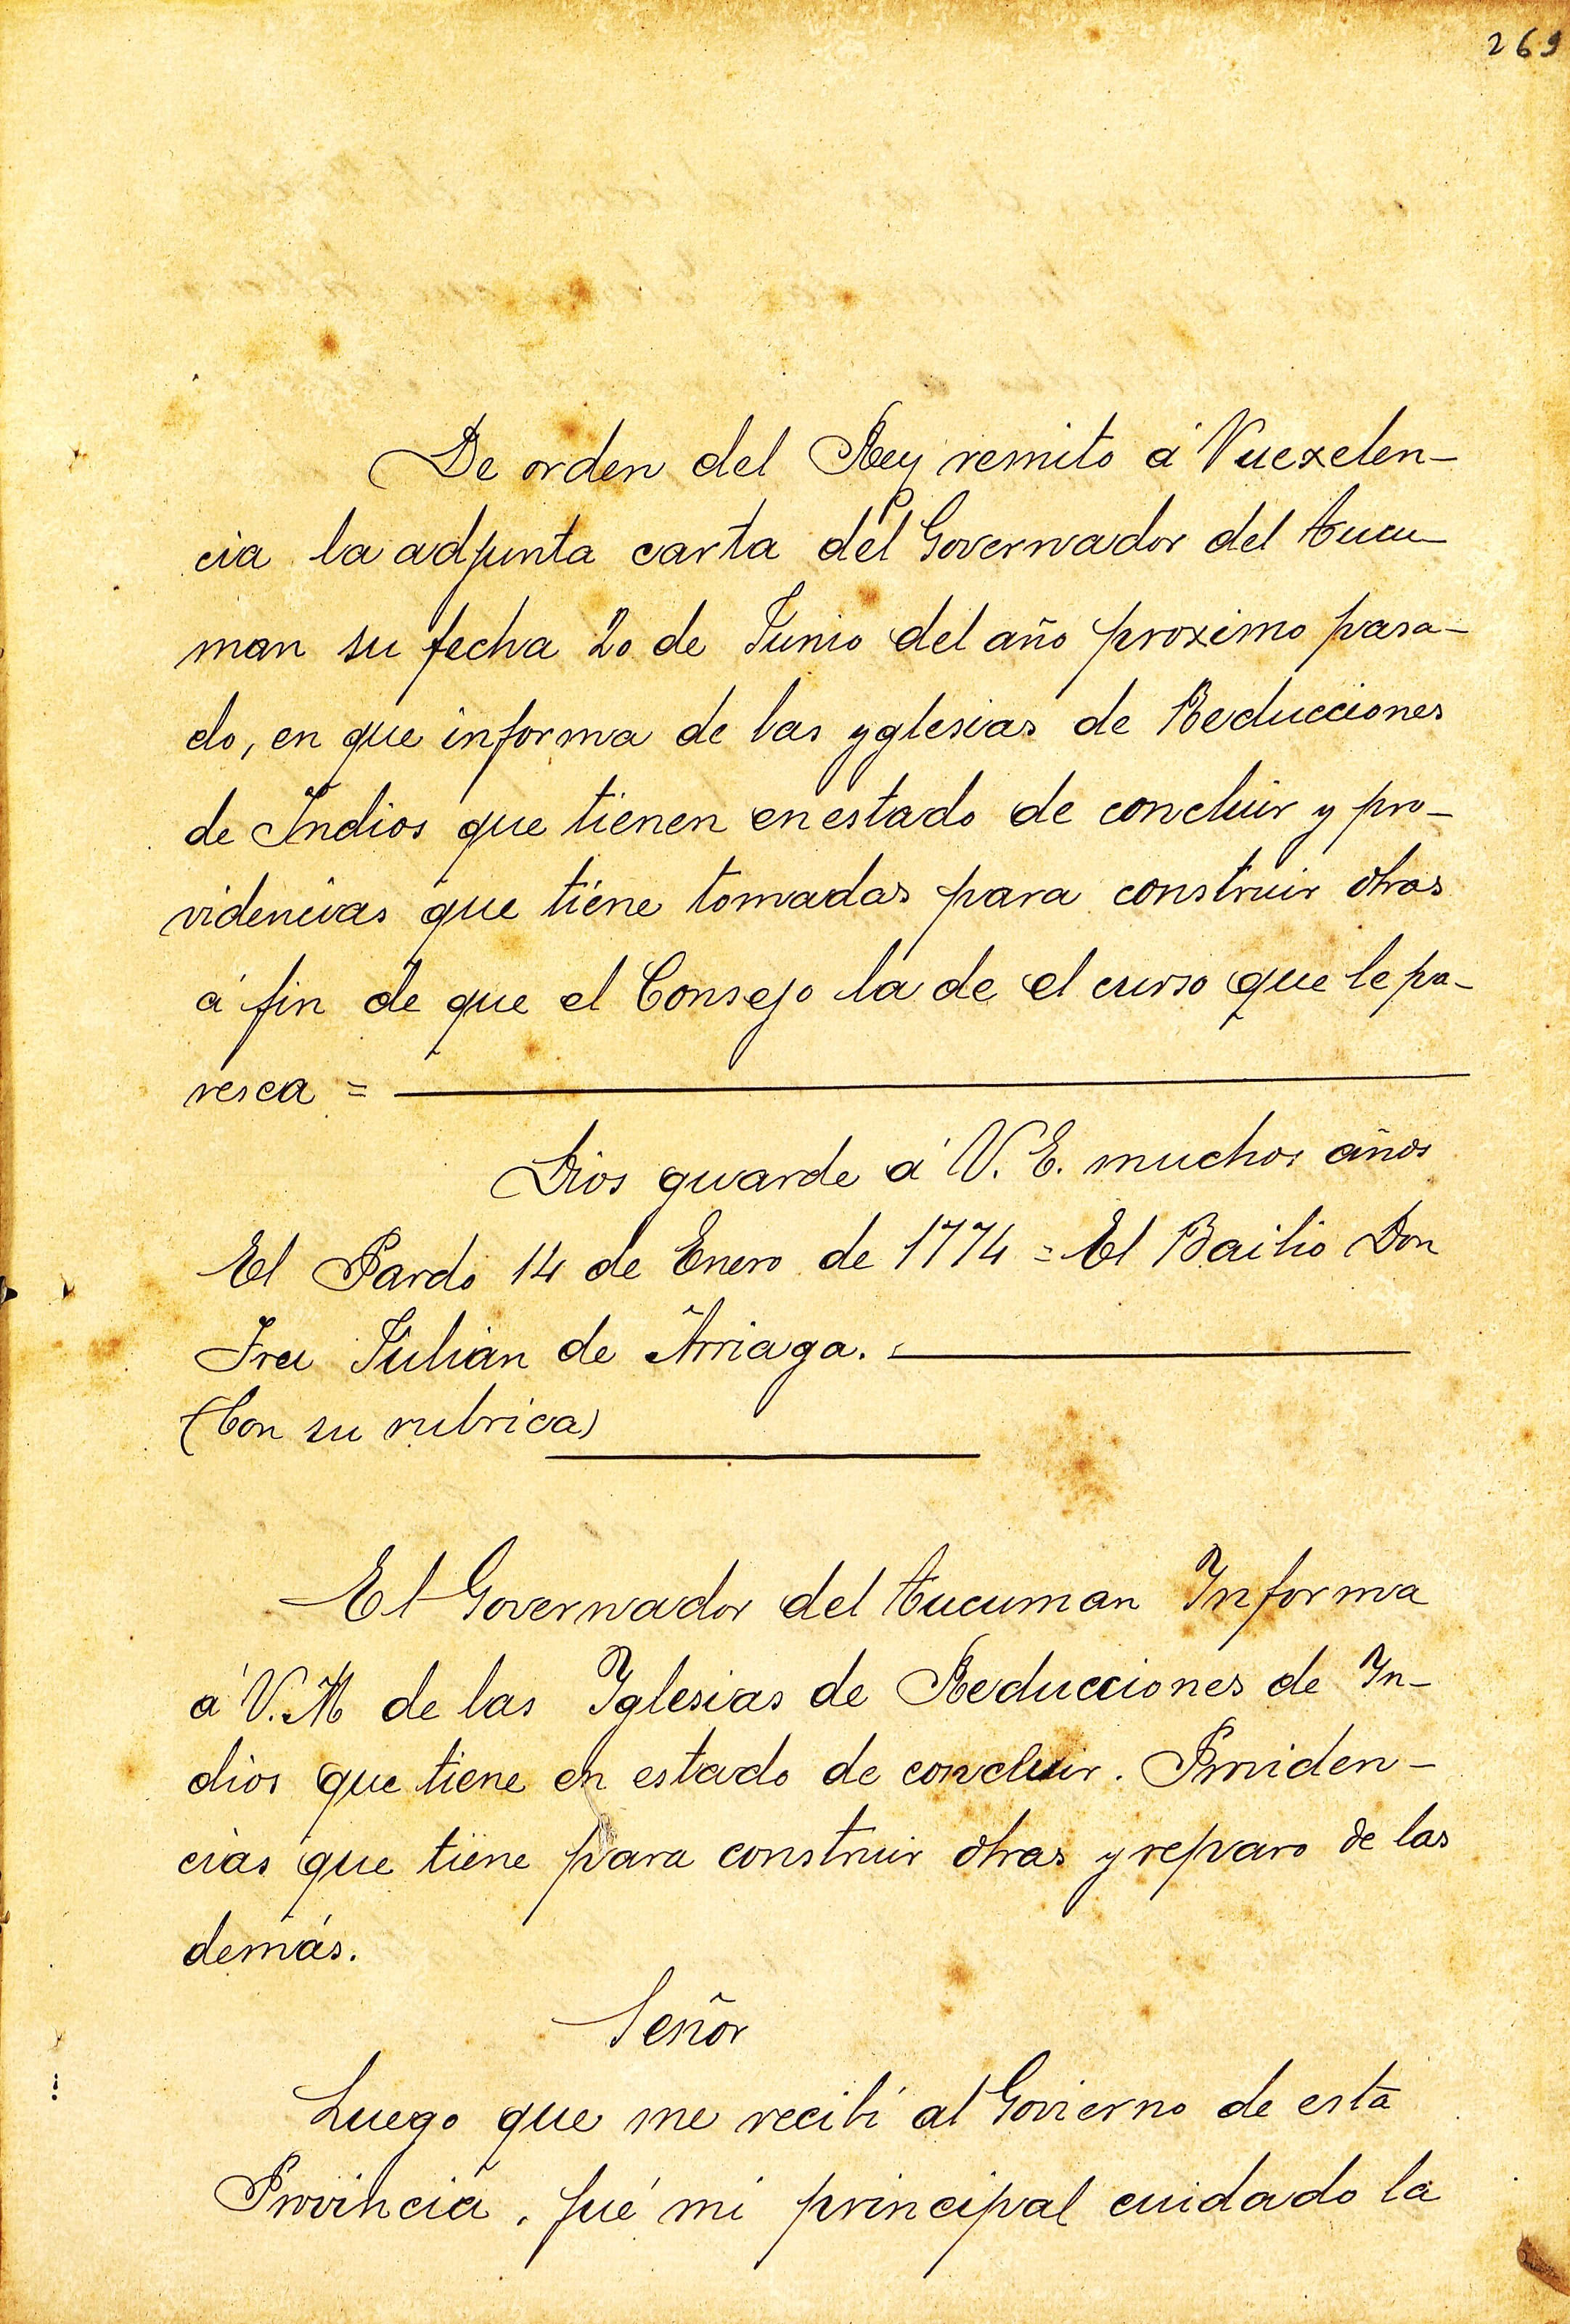 269
De orden del Rey remito á Vuexelen-
cia la adjunta carta del Governador del Tucu-
man su fecha 20 de Junio del año proximo pasa-
do, en que informa de las yglesias de Reducciones
de Indios que tienen en estado de concluir y pro-
videncias que tiene tomadas para construir otras
á fin de que el Consejo la de el curso que le pa-
resca =
Dios guarde á V. E. muchos años
El Pardo 14 de Enero de 1774 = El Bailio Don
Frei Julian de Arriaga.
(Con su rubrica)
El Governador del Tucuman Informa
á V. M de las Iglesias de Reducciones de In-
dios que tiene en estado de concluir. Providen-
cias que tiene para construir otras y reparo de las
demás.
Señor
Luego que me recibí al Govierno de esta
Provincia, fué mi principal cuidado la